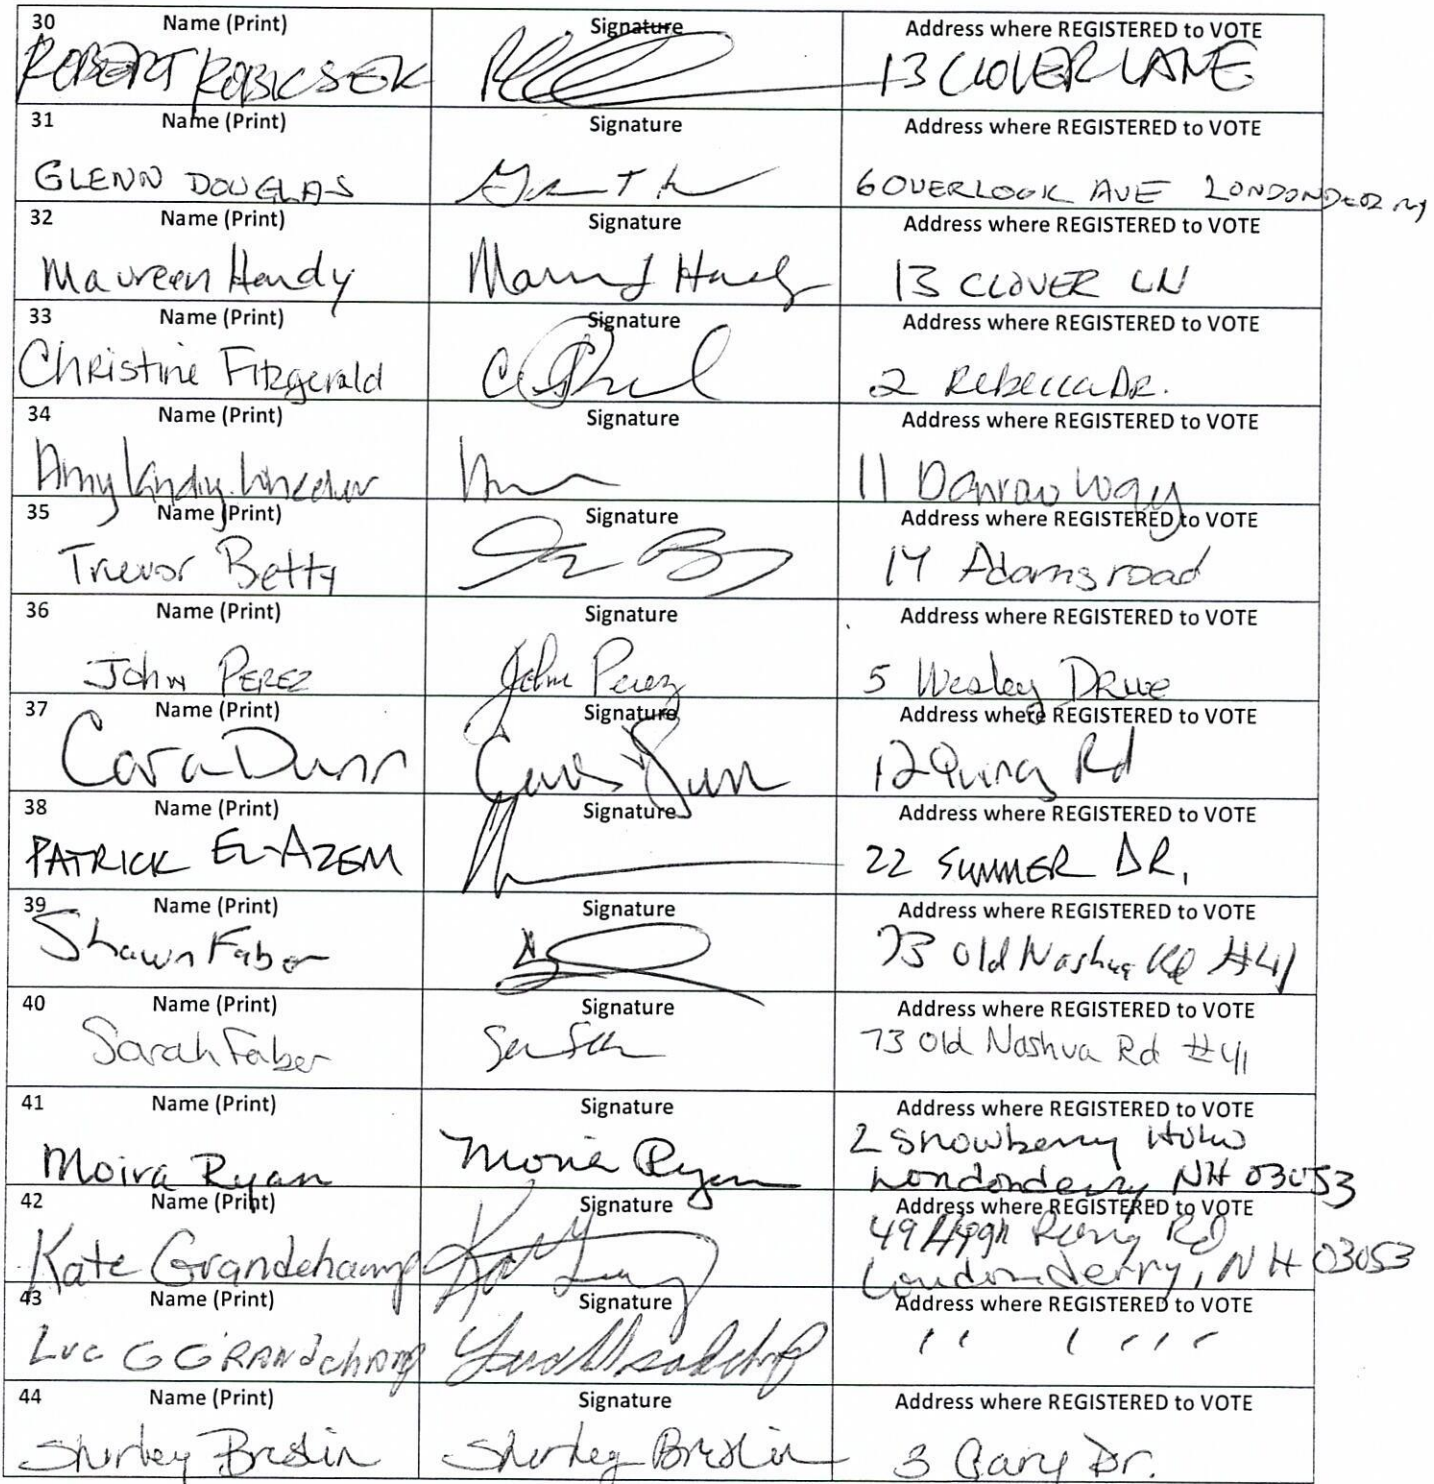 30 Name (Print) Signature Address where REGISTERED to VOTE
ROBERT ROBICSEK 13 CLOVER LANE
31 Name (Print) Signature Address where REGISTERED to VOTE
GLENN DOUGLAS 6 OVERLOOK AVE LONDONDERRY
32 Name (Print) Signature Address where REGISTERED to VOTE
Maureen Hardy 13 CLOVER LN
33 Name (Print) Signature Address where REGISTERED to VOTE
Christine Fitzgerald 2 Rebecca DR.
34 Name (Print) Signature Address where REGISTERED to VOTE
Amy 11 Way
35 Name (Print) Signature Address where REGISTERED to VOTE
Trevor Betty 14 Adams road
36 Name (Print) Signature Address where REGISTERED to VOTE
John PEREZ John Perez 5 Wesley Drive
37 Name (Print) Signature Address where REGISTERED to VOTE
Cara Dunn Cara Dunn 12 Quincy Rd
38 Name (Print) Signature Address where REGISTERED to VOTE
PATRICK EL-AZEM 22 SUMMER DR.
39 Name (Print) Signature Address where REGISTERED to VOTE
Shawn Faber 73 Old Nashua Rd #41
40 Name (Print) Signature Address where REGISTERED to VOTE
Sarah Faber 73 Old Nashua Rd #41
41 Name (Print) Signature Address where REGISTERED to VOTE
Moira Ryan Moira Ryan 2 Snowberry
Londonderry NH 03053
42 Name (Print) Signature Address where REGISTERED to VOTE
Kate Grandchamp 49 High Range Rd
Londonderry, NH 03053
43 Name (Print) Signature Address where REGISTERED to VOTE
Luc G GRANDchamp " " " "
44 Name (Print) Signature Address where REGISTERED to VOTE
Shirley Breslin Shirley Breslin 3 Gary Dr.